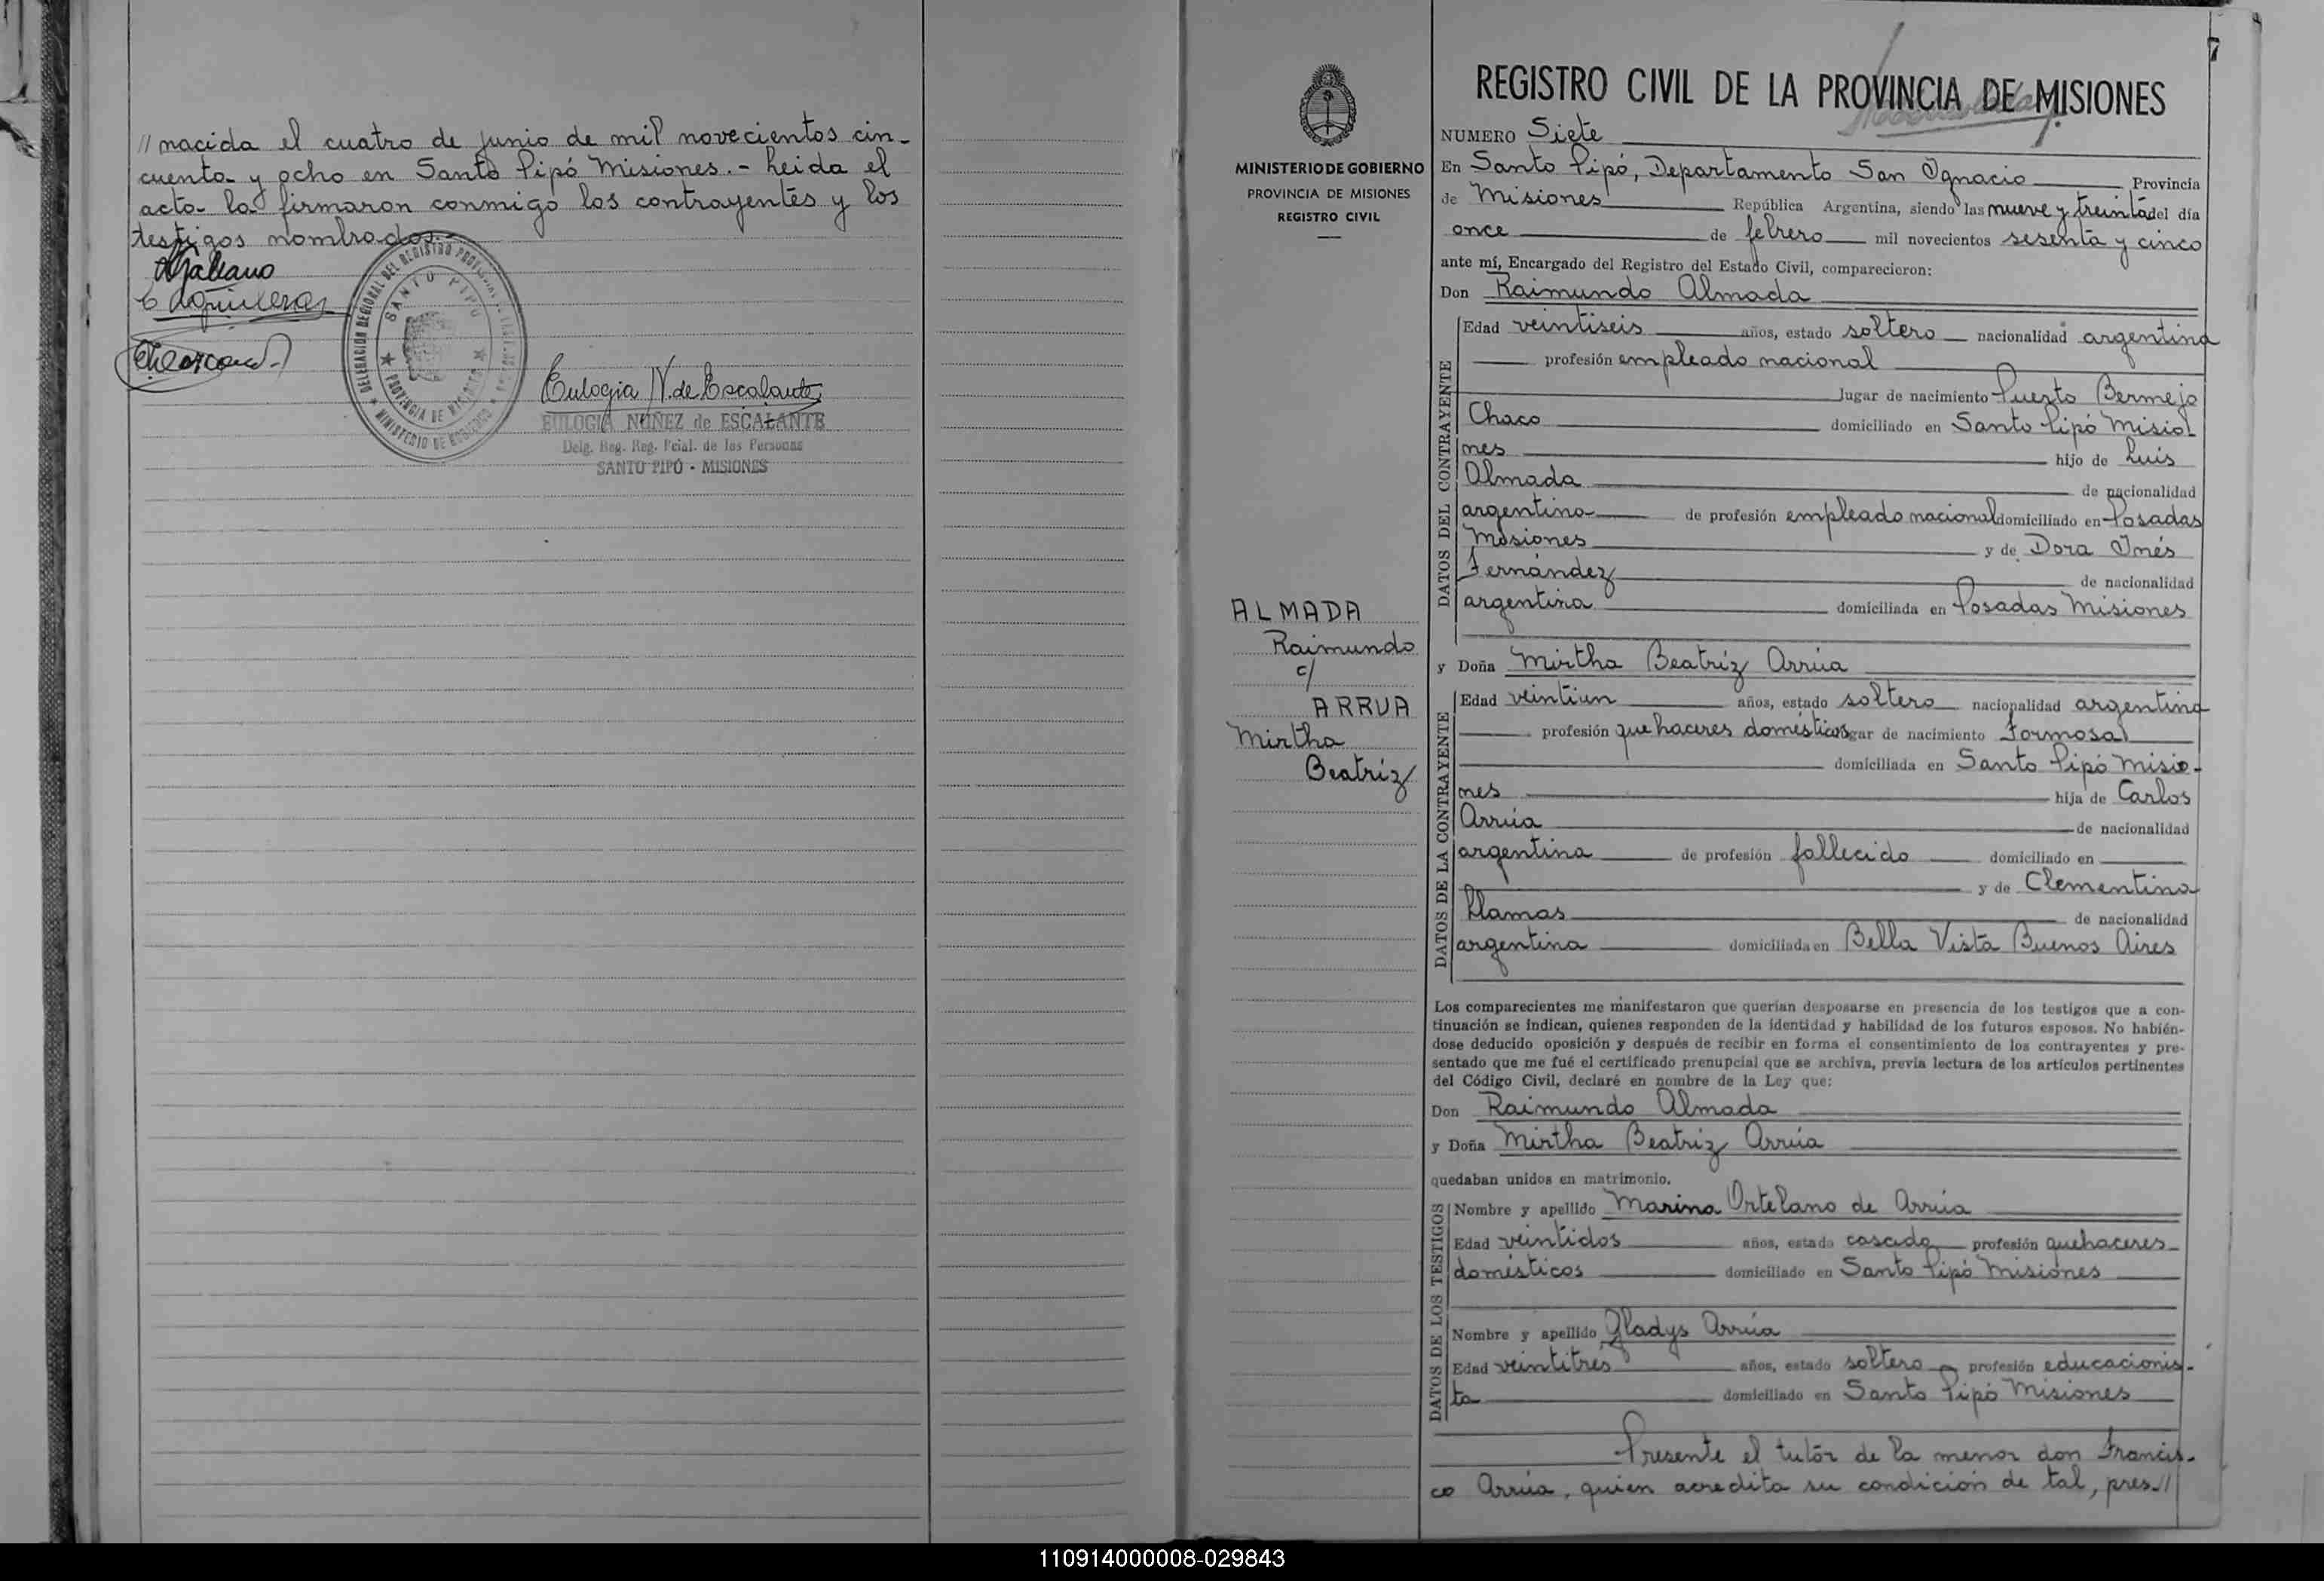 // nacida el cuatro de junio de mil novecientos cin-
cuenta y ocho en Santo Pipó Misiones.- Leida el
acta la firmaron conmigo los contrayentes y los
testigos nombrados.-
DELEGACION REGIONAL DEL REGISTRO PROVINCIAL DE LAS PERSONAS
SANTO PIPO
PROVINCIA DE MISIONES
MINISTERIO DE GOBIERNO
Eulogia N. de Escalante
EULOGIA NUÑEZ de ESCALANTE
Delg. Reg. Reg. Pcial. de las Personas
SANTO PIPÓ - MISIONES
7
MINISTERIO DE GOBIERNO
PROVINCIA DE MISIONES
REGISTRO CIVIL
ALMADA
Raimundo
c/
ARRUA
Mirtha
Beatríz
REGISTRO CIVIL DE LA PROVINCIA DE MISIONES
NUMERO Siete
En Santo Pipó, Departamento San Ignacio Provincia
de Misiones República Argentina, siendo las nueve y treinta del día
once de febrero mil novecientos sesenta y cinco
ante mí, Encargado del Registro del Estado Civil, comparecieron:
Don Raimundo Almada
DATOS DEL CONTRAYENTE
Edad veintiseis años, estado soltero nacionalidad argentina
profesión empleado nacional
lugar de nacimiento Puerto Bermejo
Chaco domiciliado en Santo Pipó Misio-
nes hijo de Luis
Almada de nacionalidad
argentina de profesión empleado nacional domiciliado en Posadas
Misiones y de Dora Inés
Fernández de nacionalidad
argentina domiciliada en Posadas Misiones
y Doña Mirtha Beatríz Arrúa
DATOS DE LA CONTRAYENTE
Edad veintiun años, estado soltera nacionalidad argentina
profesión quehaceres domésticos lugar de nacimiento Formosa
domiciliada en Santo Pipó Misio-
nes hija de Carlos
Arrúa de nacionalidad
argentina de profesión fallecido domiciliado en
y de Clementina
Llamas de nacionalidad
argentina domiciliada en Bella Vista Buenos Aires
Los comparecientes me manifestaron que querían desposarse en presencia de los testigos que a con-
tinuación se indican, quienes responden de la identidad y habilidad de los futuros esposos. No habién-
dose deducido oposición y después de recibir en forma el consentimiento de los contrayentes y pre-
sentado que me fué el certificado prenupcial que se archiva, previa lectura de los artículos pertinentes
del Código Civil, declaré en nombre de la Ley que:
Don Raimundo Almada
y Doña Mirtha Beatriz Arrúa
quedaban unidos en matrimonio.
DATOS DE LOS TESTIGOS
Nombre y apellido Marina Ortelano de Arrúa
Edad veintidos años, estado casada profesión quehaceres
domésticos domiciliado en Santo Pipó Misiones
Nombre y apellido Gladys Arrúa
Edad veintitres años, estado soltera profesión educacionis-
ta domiciliado en Santo Pipó Misiones
Presente el tutor de la menor don Francis-
co Arrúa, quien acredita su condición de tal, pres//
110914000008-029843